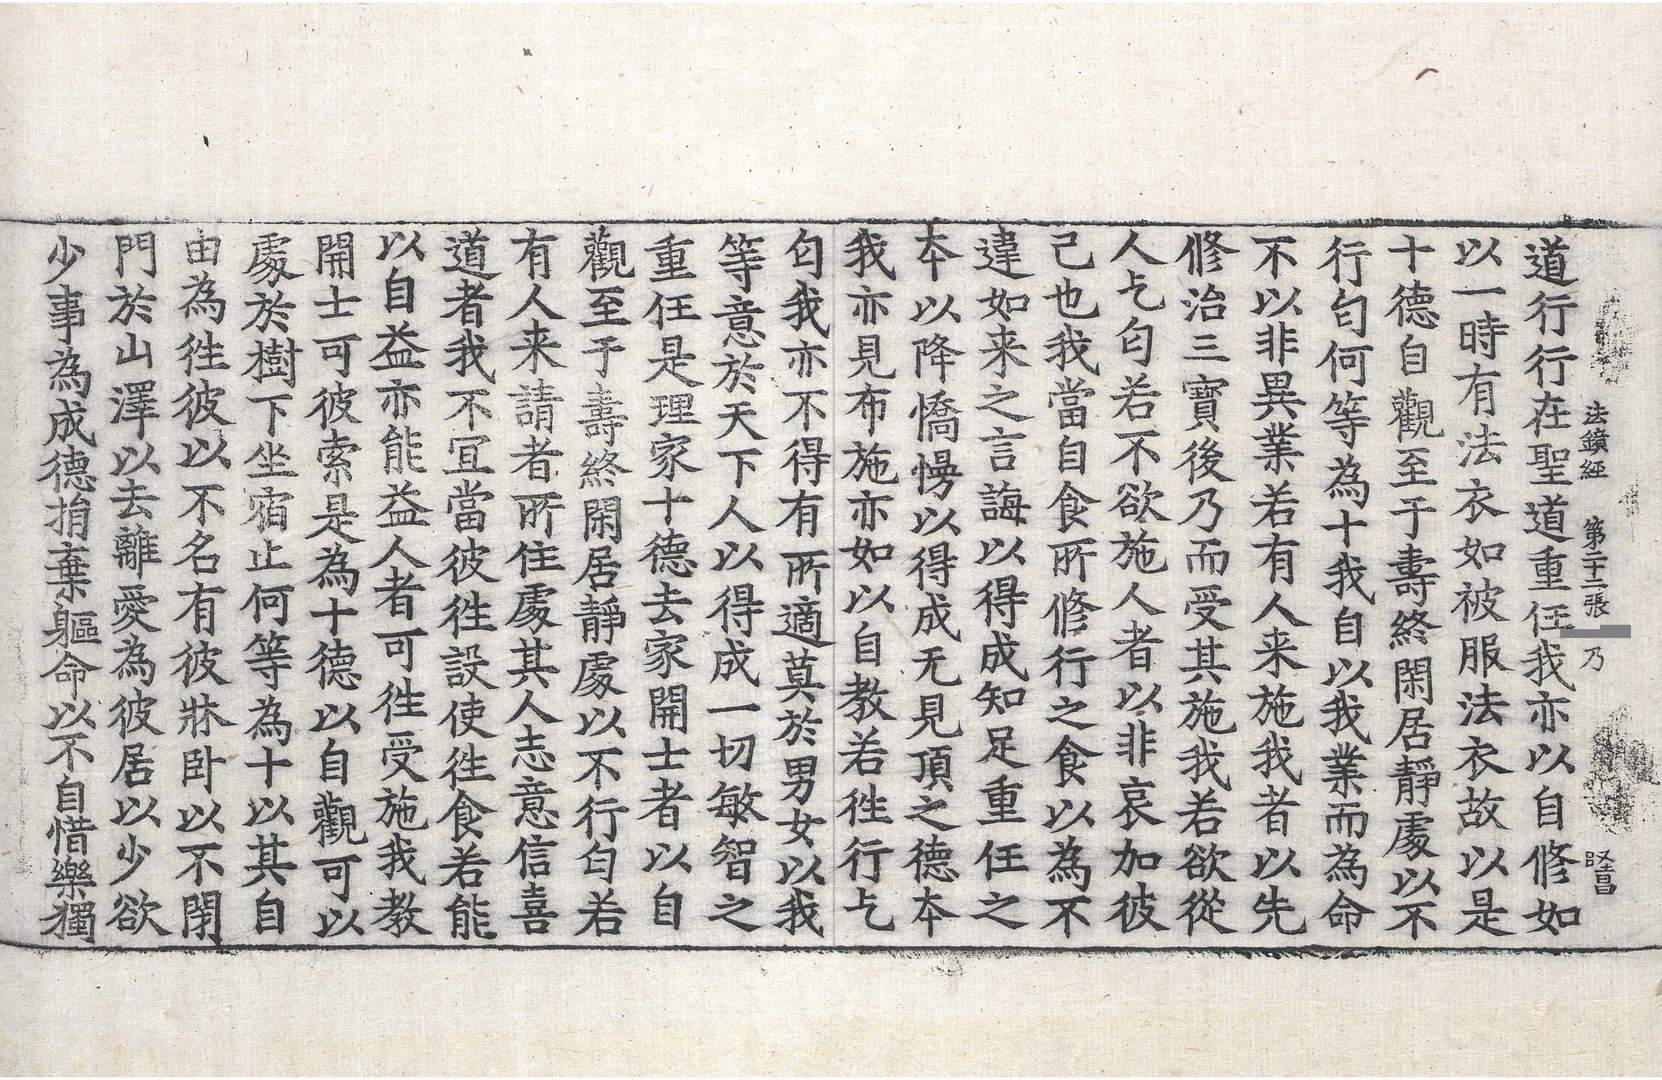 法鏡經　第二十二張　乃　賢
道行行在聖道重任我亦以自修如
以一時有法衣如被服法衣故以是
十德自觀至于壽終閑居靜處以不
行匄何等為十我自以我業而為命
不以非異業若有人来施我者以先
修治三寶後乃而受其施我若欲從
人乞匄若不欲施人者以非哀加彼
己也我當自食所修行之食以為不
違如来之言誨以得成知足重任之
本以降憍慢以得成无見頂之德本
我亦見布施亦如以自教若徃行乞
匄我亦不得有所適莫於男女以我
等意於天下人以得成一切敏智之
重任是理家十德去家開士者以自
觀至于壽終閑居靜處以不行匄若
有人来請者所住處其人志意信喜
道者我不冝當彼徃設使徃食若能
以自益亦能益人者可徃受施我教
開士可彼索是為十德以自觀可以
處於樹下坐宿止何等為十以其自
由為徃彼以不名有彼牀臥以不閉
門於山澤以去離愛為彼居以少欲
少事為成德捐棄軀命以不自惜樂獨